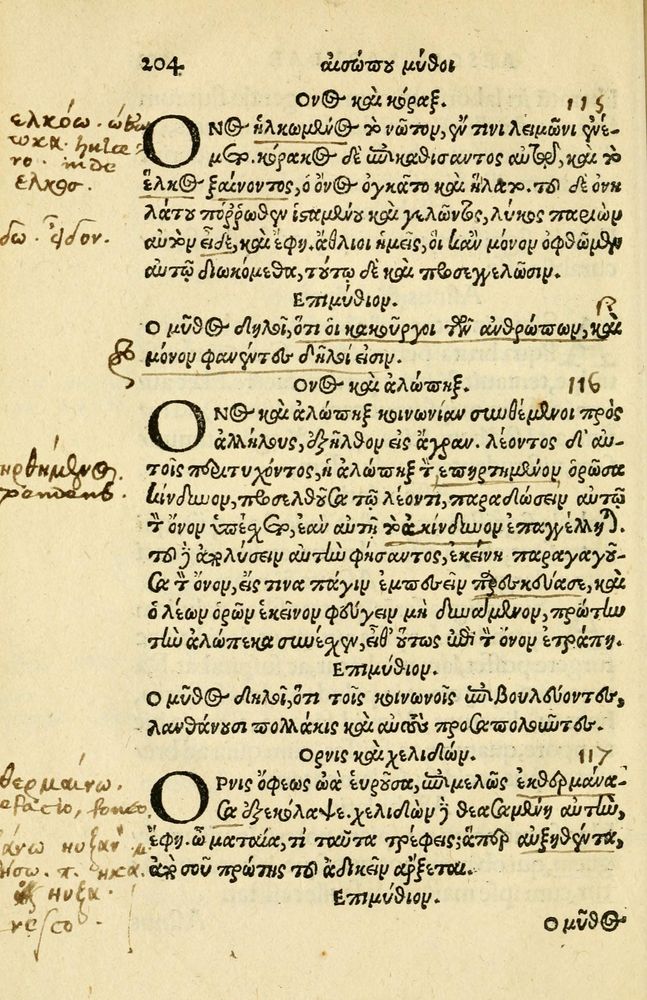 204 αἰσώπου μῦθοι
Ονος καὶ κόραξ. 115
ΟΝος ἡλκωμένος τὸ νῶτον, ἔν τινι λειμῶνι ἐνέ-
μετο. κόρακος δὲ ἐπικαθίσαντος αὐτῷ, καὶ τὸ
ἕλκος ξαίνοντος, ὁ ὄνος ὀγκᾶτο καὶ ἥλατο. τοῦ δὲ ὀνη
λάτου πόῤῥωθεν ἱσταμένου καὶ γελῶντος, λύκος παριὼν
αὐτὸν εἶδε, καὶ ἔφη. ἄθλιοι ἡμεῖς, οἳ κἂν μόνον ὀφθῶμεν
αὐτῷ διωκόμεθα, τούτῳ δὲ καὶ προσεγγελῶσιν.
Επιμύθιον.
Ο μῦθος δηλοῖ, ὅτι οἱ κακοῦργοι τῶν ἀνθρώπων, καὶ
μόνον φανέντες δῆλοί εἰσιν.
Ονος καὶ ἀλώπηξ. 116
ΟΝος καὶ ἀλώπηξ κοινωνίαν συνθέμενοι πρὸς
ἀλλήλους, ἐξῆλθον εἰς ἄγραν. λέοντος δ' αὐ-
τοῖς περιτυχόντος, ἡ ἀλώπηξ τὸν ἐπηρτημένον ὁρῶσα
κίνδυνον, προσελθοῦσα τῷ λέοντι, παραδώσειν αὐτῷ
τὸν ὄνον ὑπέσχετο, ἐὰν αὐτῇ τὸ ἀκίνδυνον ἐπαγγέλληται.
τοῦ δὲ ἀπολύσειν αὐτὴν φήσαντος, ἐκείνη παραγαγοῦ-
σα τὸν ὄνον, εἴς τινα πάγην ἐμπεσεῖν παρεσκεύασε, καὶ
ὁ λέων ὁρῶν ἐκεῖνον φεύγειν μὴ δυνάμενον, πρώτην
τὴν ἀλώπεκα συνέσχεν, εἶθ' οὕτως ἐπὶ τὸν ὄνον ἐτράπη.
Επιμύθιον.
Ο μῦθος δηλοῖ, ὅτι τοῖς κοινωνοῖς ἐπιβουλεύοντες,
λανθάνουσι πολλάκις καὶ αὐτοὺς προσαπολοῦντες.
Ορνις καὶ χελιδών. 117
ΟΡνις ὄφεως ὠὰ εὑροῦσα, ἐπιμελῶς ἐκθερμάνα-
σα ἐξεκόλαψε. χελιδὼν δὲ θεασαμένη αὐτὴν,
ἔφη. ὦ ματαία, τί ταῦτα τρέφεις; ἅπερ αὐξηθέντα,
ἀπὸ σοῦ πρώτης τοῦ ἀδικεῖν ἄρξεται.
Επιμύθιον.
Ο μῦθος
ελκόω.
ελκος.
pendens.
θερμαίνω.